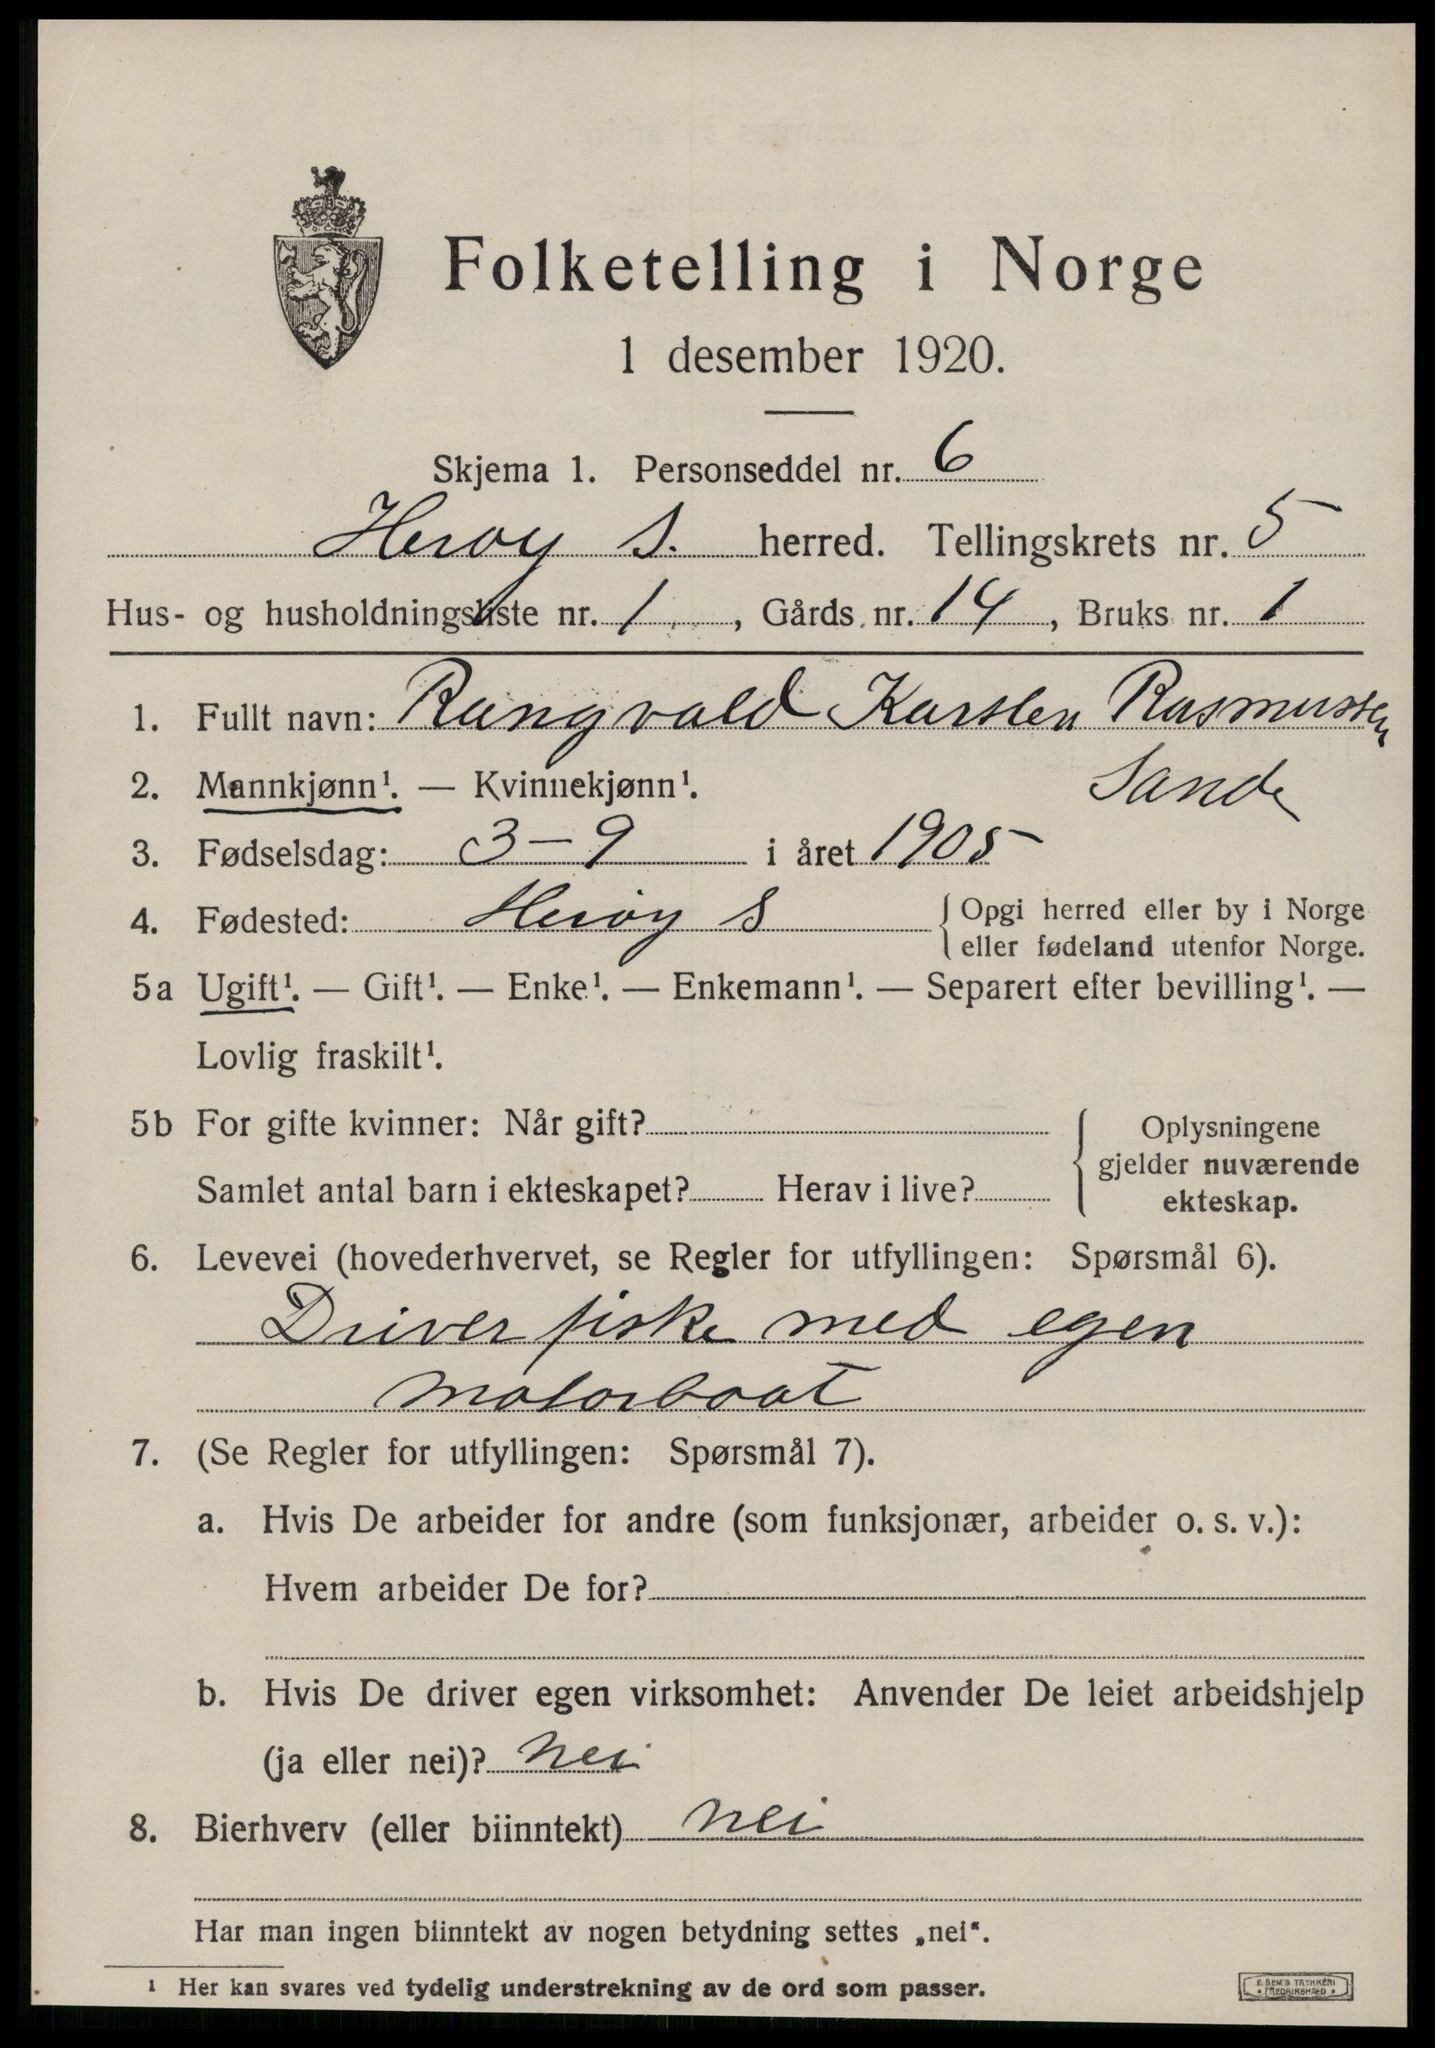 Folketelling i Norge
1 desember 1920.
Skjema 1. Personseddel nr. 6
Herøy S. herred. Tellingskrets nr. 5
Hus- og husholdningsliste nr. 1, Gårds nr. 14, Bruks nr. 1
1. Fullt navn: Rangvald Karsten Rasmussen
Sande
2. Mannkjønn¹. — Kvinnekjønn¹.
3. Fødselsdag: 3-9 i året 1905
4. Fødested: Herøy S { Opgi herred eller by i Norge
eller fødeland utenfor Norge.
5a Ugift¹. — Gift¹. — Enke¹. — Enkemann¹. — Separert efter bevilling¹. —
Lovlig fraskilt¹.
5b For gifte kvinner: Når gift? { Oplysningene
gjelder nuværende
Samlet antal barn i ekteskapet? Herav i live? ekteskap.
6. Levevei (hovederhvervet, se Regler for utfyllingen: Spørsmål 6).
Driver fiske med egen
motorbaat
7. (Se Regler for utfyllingen: Spørsmål 7).
a. Hvis De arbeider for andre (som funksjonær, arbeider o. s. v.):
Hvem arbeider De for?
b. Hvis De driver egen virksomhet: Anvender De leiet arbeidshjelp
(ja eller nei)? nei
8. Bierhverv (eller biinntekt) nei
Har man ingen biinntekt av nogen betydning settes „nei“.
¹ Her kan svares ved tydelig understrekning av de ord som passer.
E. SEM'S TRYKKERI
FREDRIKSHALD